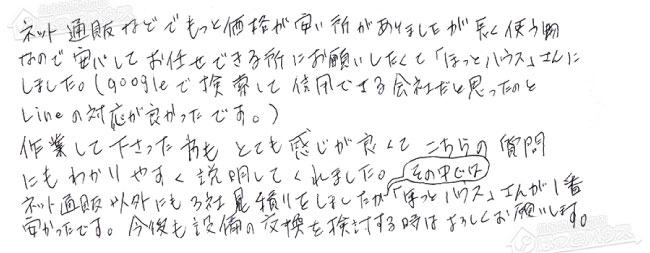 ネット通販などでもっと価格が安い所がありましたが長く使う物
なので安心してお任せできる所にお願いしたくて「ほっとハウス」さんに
しました。(googleで検索して信用できる会社だと思ったのと
Lineの対応が良かったです。)
作業して下さった方も とても感じが良くて こちらの質問
にもわかりやすく説明してくれました。
ネット通販以外にも3社見積りをしましたが その中では「ほっとハウス」さんが1番
安かったです。今後も設備の交換を検討する時はよろしくお願いします。